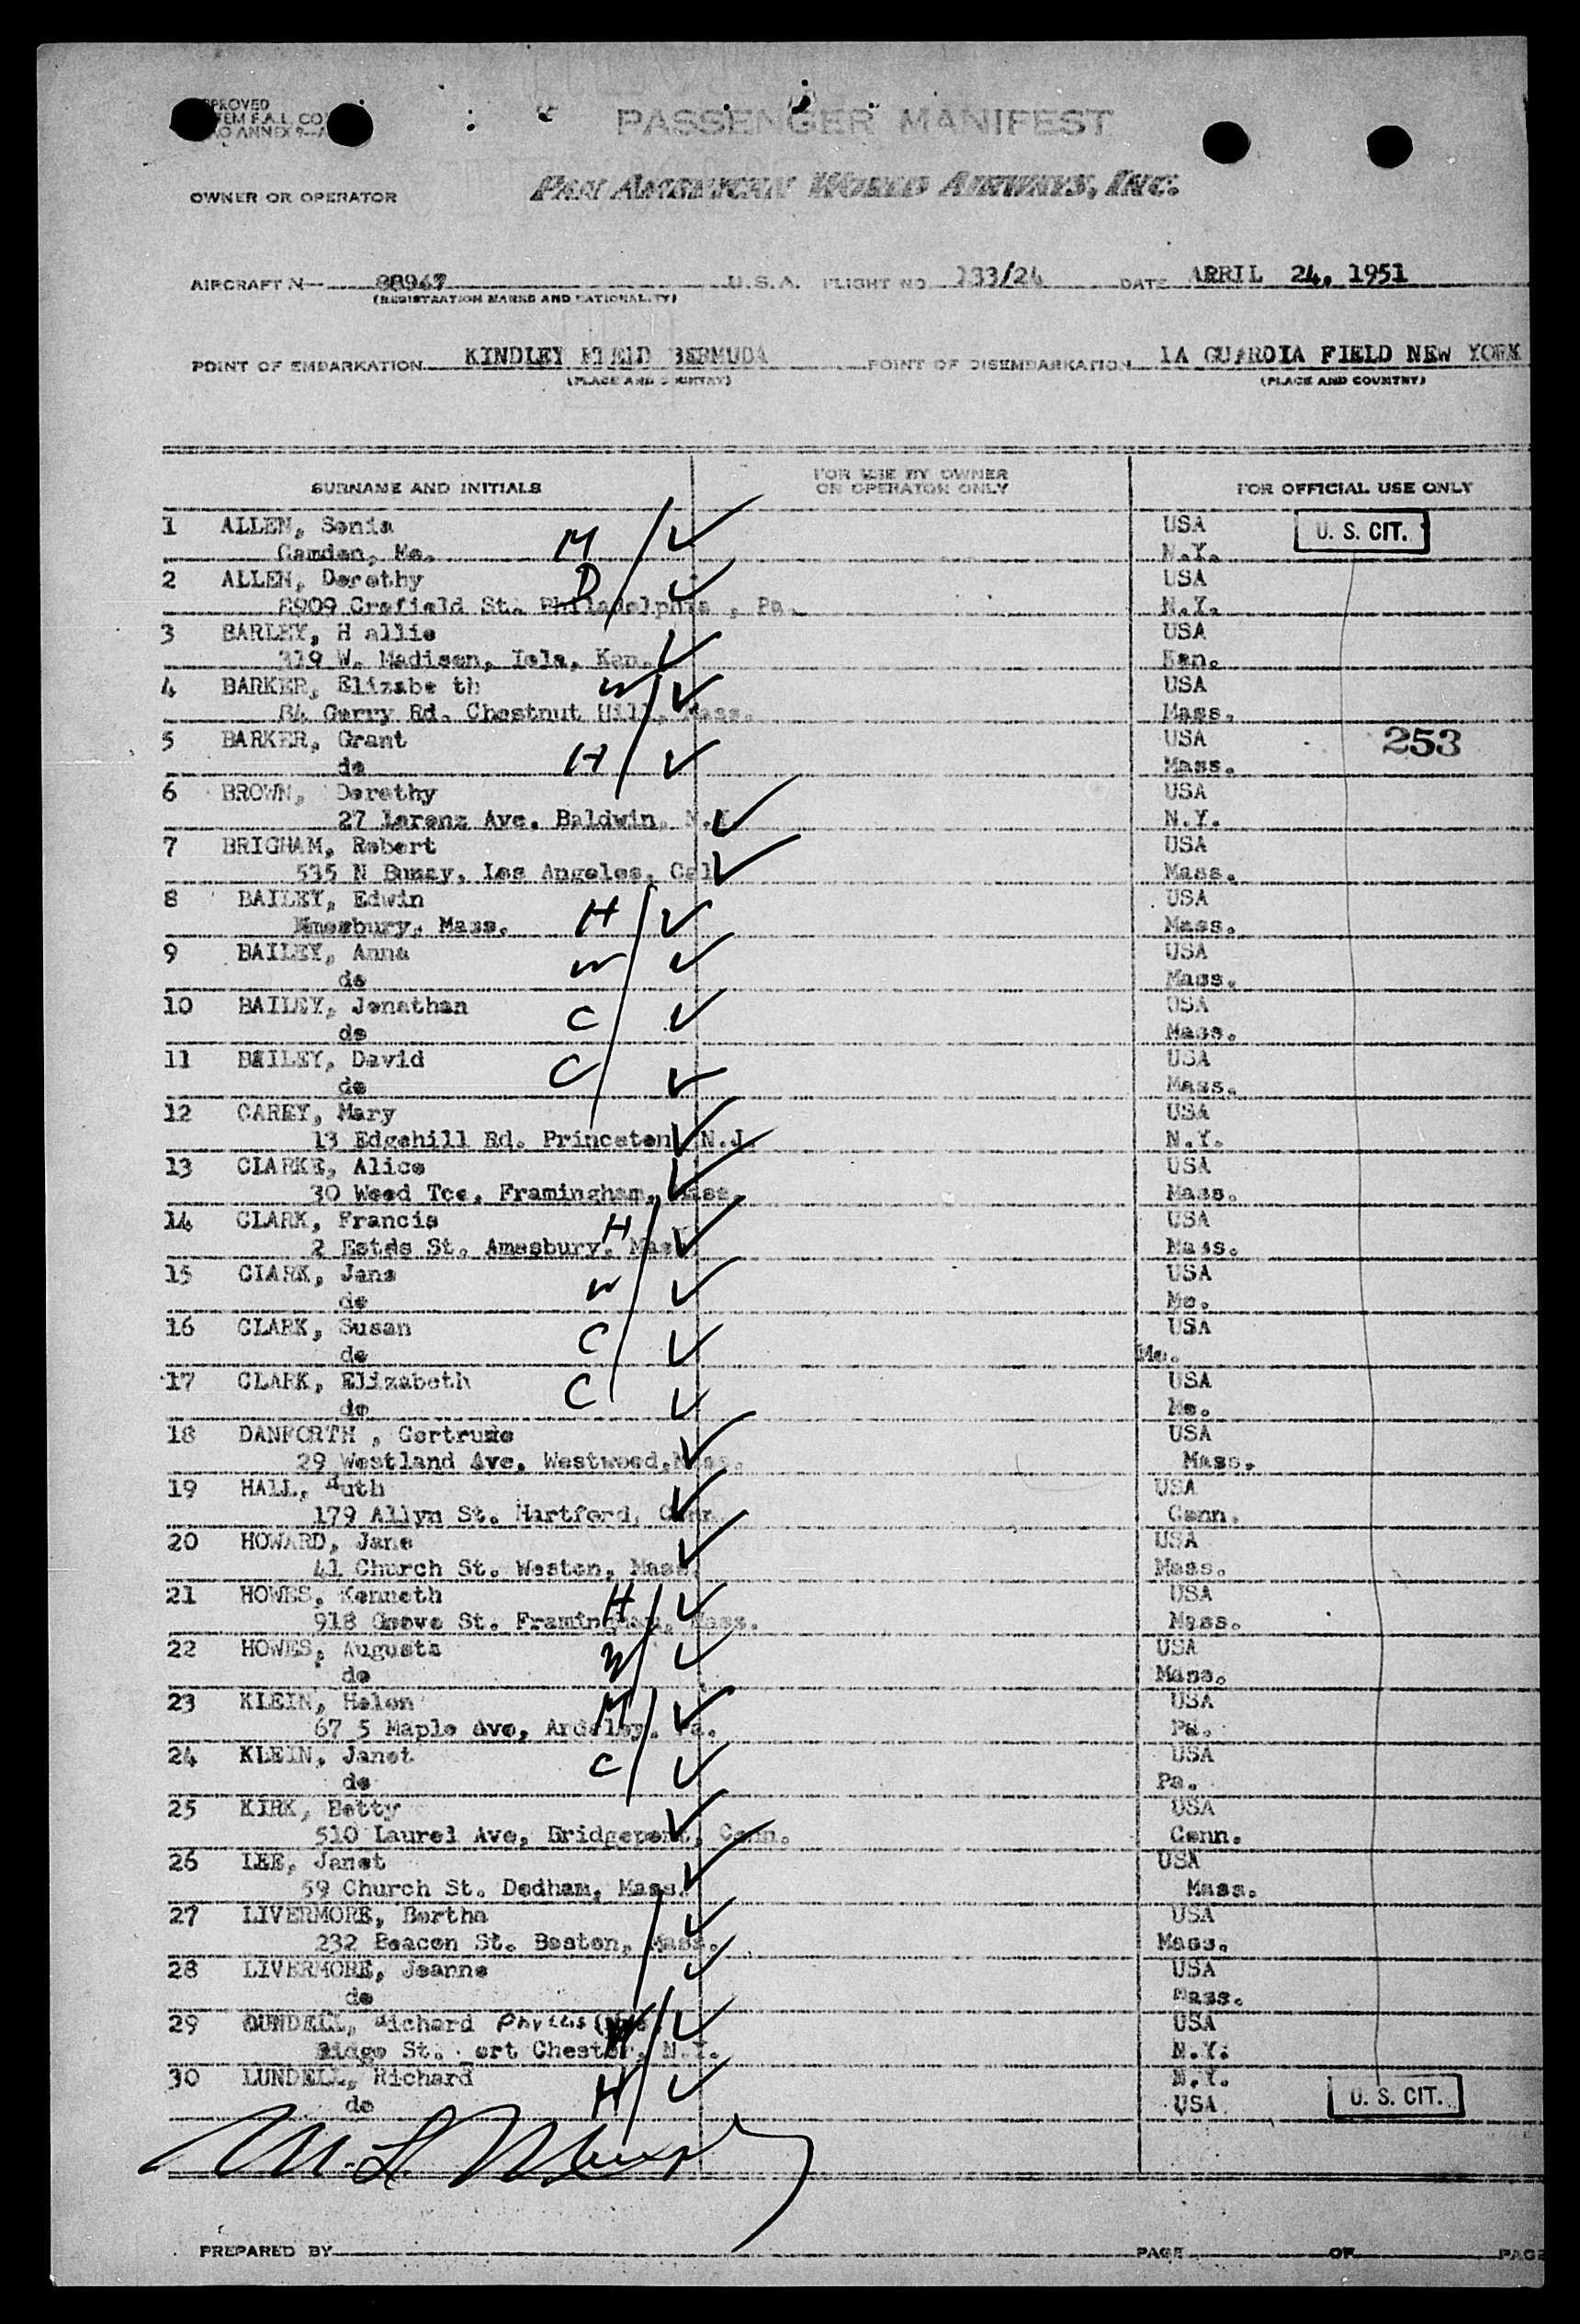 PROVED
PASSENGER MANIFEST
OWNER OR OPERATOR PAN AMERICAN WORLD AIRWAYS, INC.
AIRCRAFT N U.S.A. FLIGHT NO 133/24 DATE APRIL 24, 1951
(REGISTRATION MARKS AND NATIONALITY)
POINT OF EMBARKATION KINDLEY FIELD BERMUDA POINT OF DISEMBARKATION LA GUARDIA FIELD NEW YORK
(PLACE AND COUNTRY) (PLACE AND COUNTRY)
SURNAME AND INITIALS FOR USE BY OWNER OR OPERATOR ONLY FOR OFFICIAL USE ONLY
1 ALLEN, Sonia USA U. S. CIT.
Camden, Me. M N.Y.
2 ALLEN, Dorothy D USA
8909 Crefield St. Philadelphia, Pa. N.Y.
3 BARLEY, H allie USA
319 W. Madison, Iola, Kan. Kan.
4 BARKER, Elizabe th W USA
84 Gerry Rd. Chestnut Hill, Mass. Mass.
5 BARKER, Grant USA 253
do H Mass.
6 BROWN, Dorothy USA
27 Lorenz Ave. Baldwin, N.Y. N.Y.
7 BRIGHAM, Robert USA
535 N Los Angeles, Cal Mass.
8 BAILEY, Edwin H USA
Amesbury, Mass. Mass.
9 BAILEY, Anna W USA
do Mass.
10 BAILEY, Jonathan C USA
do Mass.
11 BAILEY, David C USA
do Mass.
12 CAREY, Mary USA
13 Edgehill Rd. Princeton, N.J. N.Y.
13 CLARKE, Alice USA
30 Weed Tce, Framingham, Mass. Mass.
14 CLARK, Francis H USA
2 Estes St. Amesbury, Mass. Mass.
15 CLARK, Jane W USA
do Me.
16 CLARK, Susan C USA
do Me.
17 CLARK, Elizabeth C USA
do Me.
18 DANFORTH , Gertrude USA
29 Westland Ave. Westwood, Mass. Mass.
19 HALL, Ruth USA
179 Allyn St. Hartford, Conn. Conn.
20 HOWARD, Jane USA
41 Church St. Weston, Mass. Mass.
21 HOWES, Kenneth H USA
918 Grove St. Framingham, Mass. Mass.
22 HOWES, Augusta W USA
do Mass.
23 KLEIN, Helen M USA
67 5 Maple Ave, Ardsley, Pa. Pa.
24 KLEIN, Janet C USA
do Pa.
25 KIRK, Betty USA
510 Laurel Ave, Bridgeport, Conn. Conn.
26 LEE, Janet USA
59 Church St. Dedham, Mass. Mass.
27 LIVERMORE, Bertha USA
232 Beacon St. Boston, Mass. Mass.
28 LIVERMORE, Jeanne USA
do Mass.
29 LUNDELL, Richard Phyllis W USA
Ridge St. Port Chester, N.Y. N.Y.
30 LUNDELL, Richard H N.Y.
do USA U. S. CIT.
M. L. Murphy
PREPARED BY PAGE OF PAGE